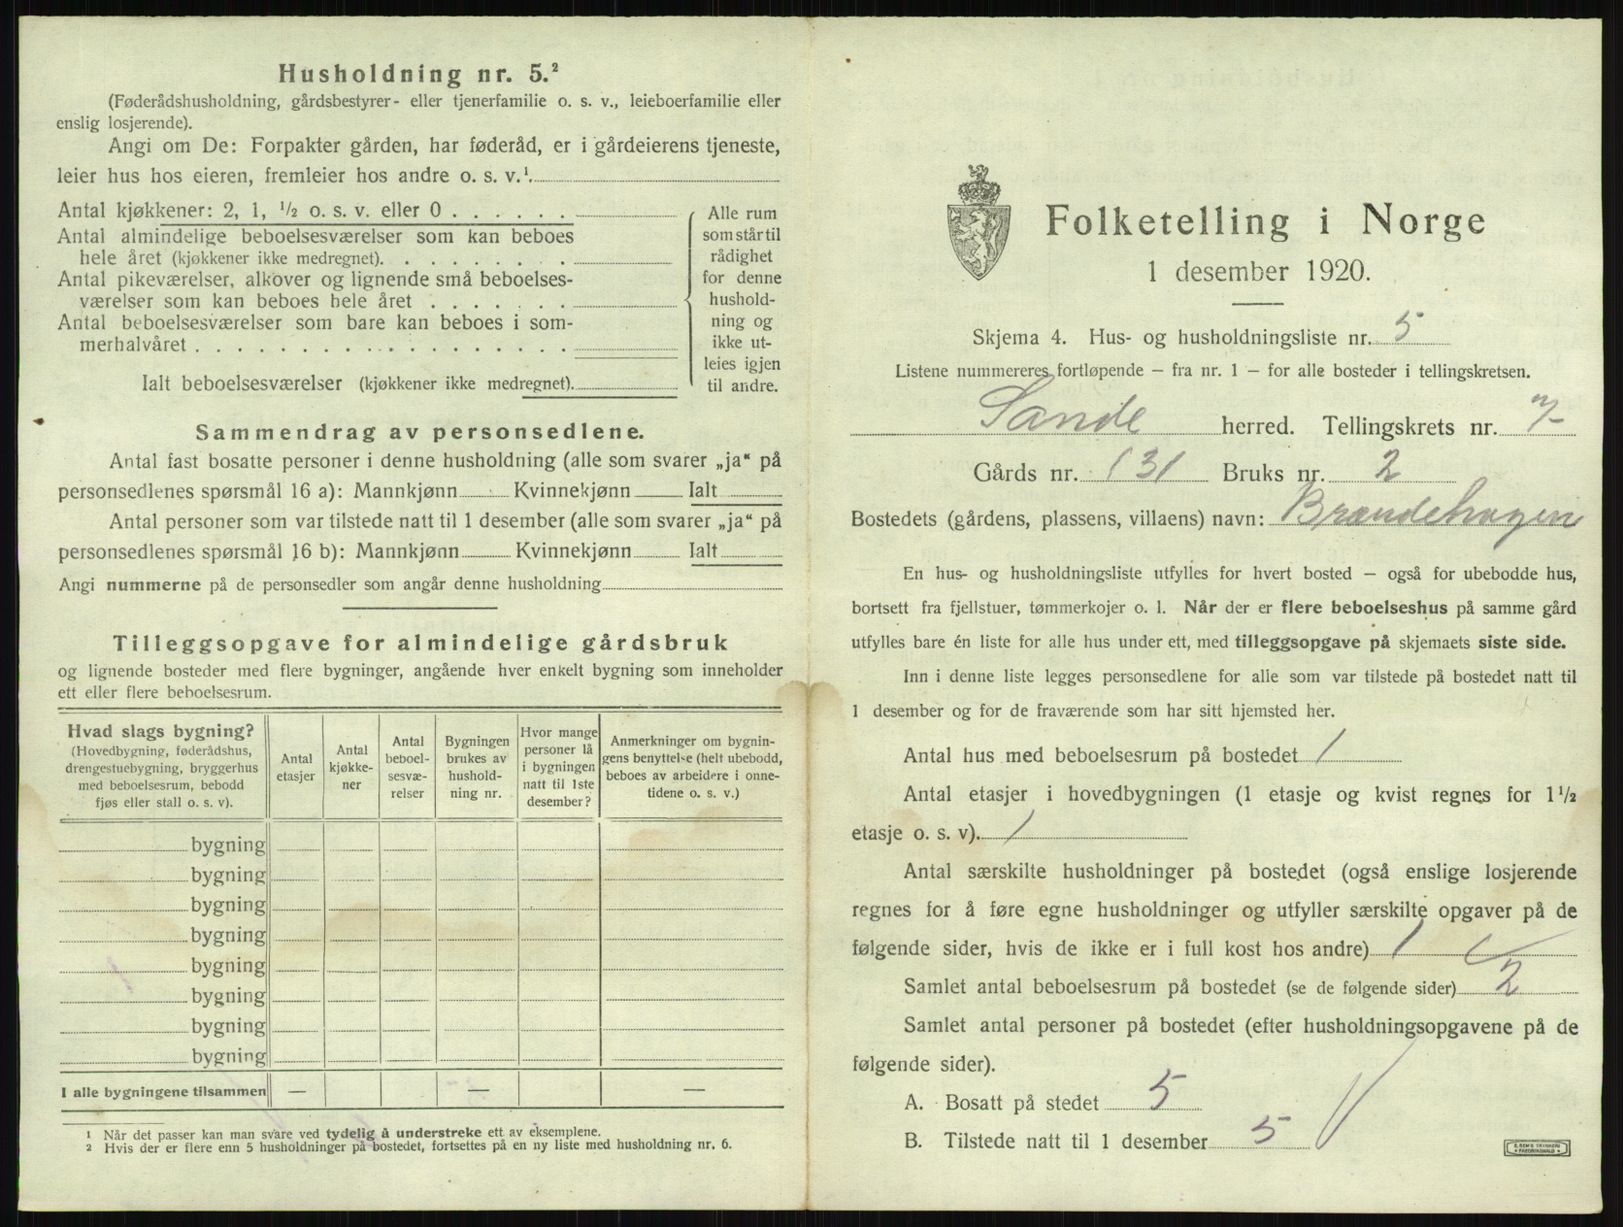 Husholdning nr. 5.²
(Føderådshusholdning, gårdsbestyrer- eller tjenerfamilie o. s. v., leieboerfamilie eller
enslig losjerende).
Angi om De: Forpakter gården, har føderåd, er i gårdeierens tjeneste,
leier hus hos eieren, fremleier hos andre o. s. v.¹
Antal kjøkkener: 2, 1, ½ o. s. v. eller 0 . . . . . .
Antal almindelige beboelsesværelser som kan beboes
hele året (kjøkkener ikke medregnet). . . . . . . . .
Antal pikeværelser, alkover og lignende små beboelses-
værelser som kan beboes hele året . . . . . . .
Antal beboelsesværelser som bare kan beboes i som-
merhalvåret . . . . . . . . . . . . . . . . . .
Ialt beboelsesværelser (kjøkkener ikke medregnet).
Alle rum
som står til
rådighet
for denne
hushold-
ning og
ikke ut-
leies igjen
til andre.
Sammendrag av personsedlene.
Antal fast bosatte personer i denne husholdning (alle som svarer „ja“ på
personsedlenes spørsmål 16 a): Mannkjønn Kvinnekjønn Ialt
Antal personer som var tilstede natt til 1 desember (alle som svarer „ja“ på
personsedlenes spørsmål 16 b): Mannkjønn Kvinnekjønn Ialt
Angi nummerne på de personsedler som angår denne husholdning
Tilleggsopgave for almindelige gårdsbruk
og lignende bosteder med flere bygninger, angående hver enkelt bygning som inneholder
ett eller flere beboelsesrum.
Hvad slags bygning?
(Hovedbygning, føderådshus,
drengestuebygning, bryggerhus
med beboelsesrum, bebodd
fjøs eller stall o. s. v).
Antal
etasjer
Antal
kjøkke-
ner
Antal
beboel-
sesvæ-
relser
Bygningen
brukes av
hushold-
ning nr.
Hvor mange
personer lå
i bygningen
natt til 1ste
desember?
Anmerkninger om bygnin-
gens benyttelse (helt ubebodd,
beboes av arbeidere i onne-
tidene o. s. v.)
bygning
bygning
bygning
bygning
bygning
bygning
bygning
bygning
I alle bygningene tilsammen — — —
1 Når det passer kan man svare ved tydelig å understreke ett av eksemplene.
2 Hvis der er flere enn 5 husholdninger på bostedet, fortsettes på en ny liste med husholdning nr. 6.
Folketelling i Norge
1 desember 1920.
Skjema 4. Hus- og husholdningsliste nr. 5
Listene nummereres fortløpende — fra nr. 1 — for alle bosteder i tellingskretsen.
Sande herred. Tellingskrets nr. 7
Gårds nr. 131 Bruks nr. 2
Bostedets (gårdens, plassens, villaens) navn: Brandehagen
En hus- og husholdningsliste utfylles for hvert bosted — også for ubebodde hus,
bortsett fra fjellstuer, tømmerkojer o. l. Når der er flere beboelseshus på samme gård
utfylles bare én liste for alle hus under ett, med tilleggsopgave på skjemaets siste side.
Inn i denne liste legges personsedlene for alle som var tilstede på bostedet natt til
1 desember og for de fraværende som har sitt hjemsted her.
Antal hus med beboelsesrum på bostedet 1
Antal etasjer i hovedbygningen (1 etasje og kvist regnes for 1½
etasje o. s. v). 1
Antal særskilte husholdninger på bostedet (også enslige losjerende
regnes for å føre egne husholdninger og utfyller særskilte opgaver på de
følgende sider, hvis de ikke er i full kost hos andre) 1
Samlet antal beboelsesrum på bostedet (se de følgende sider) 2
Samlet antal personer på bostedet (efter husholdningsopgavene på de
følgende sider).
A. Bosatt på stedet 5
B. Tilstede natt til 1 desember 5